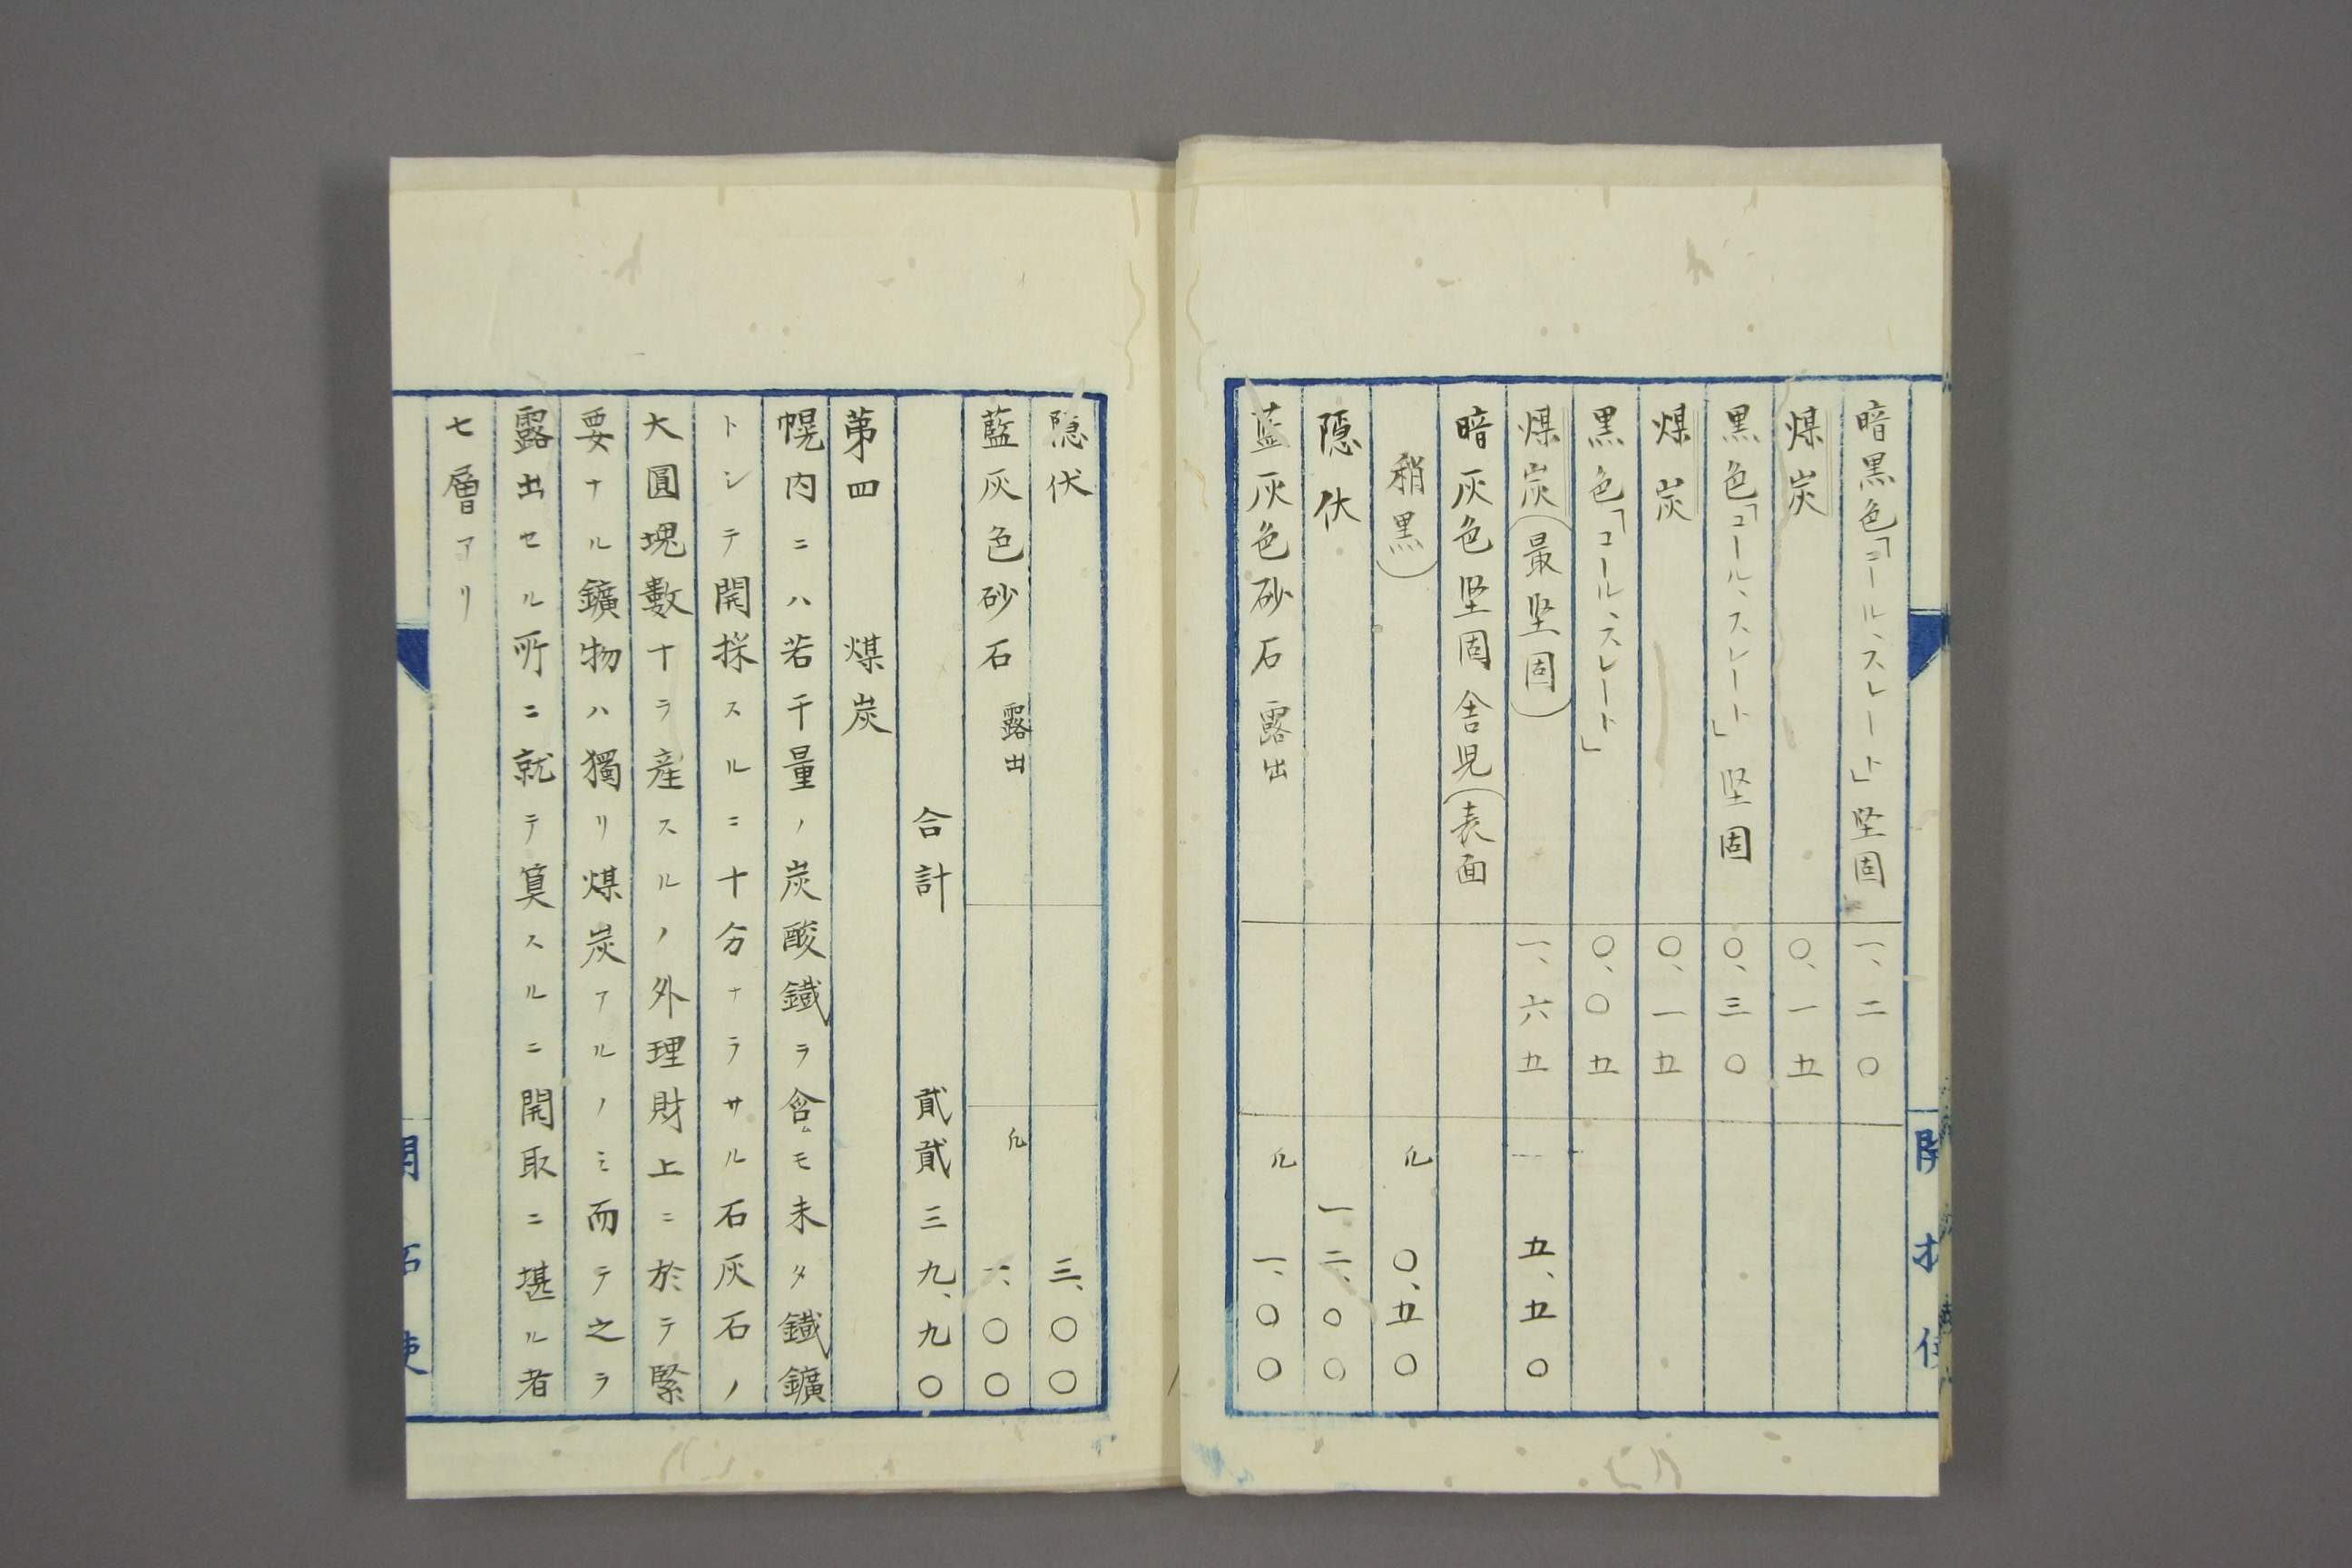 暗黒色「コール、スレート」堅固 一、二〇
煤炭 〇、一五
黒色「コール、スレート」堅固 〇、三〇
煤炭 〇、一五
黒色「コール、スレート」 〇、〇五
煤炭(最堅固) 一、六五 五、五〇
暗灰色堅固舎児(表面
稍黒) 凡 〇、五〇
隠伏 一二、〇〇
藍灰色砂石 露出 凡 一、〇〇
隠伏 三、〇〇
藍灰色砂石 露出 凡 一、〇〇
合計 貮貮三九、九〇
第四 煤炭
幌内ニハ若干量ノ炭酸鐵ヲ含ムモ未タ鐵鑛
トシテ開採スルニ十分ナラサル石灰石ノ
大圓塊數十ヲ産スルノ外理財上ニ於テ緊
要ナル鑛物ハ獨リ煤炭アルノミ而テ之ヲ
露出セル所ニ就テ算スルニ開取ニ堪ル者
七層アリ
開拓使